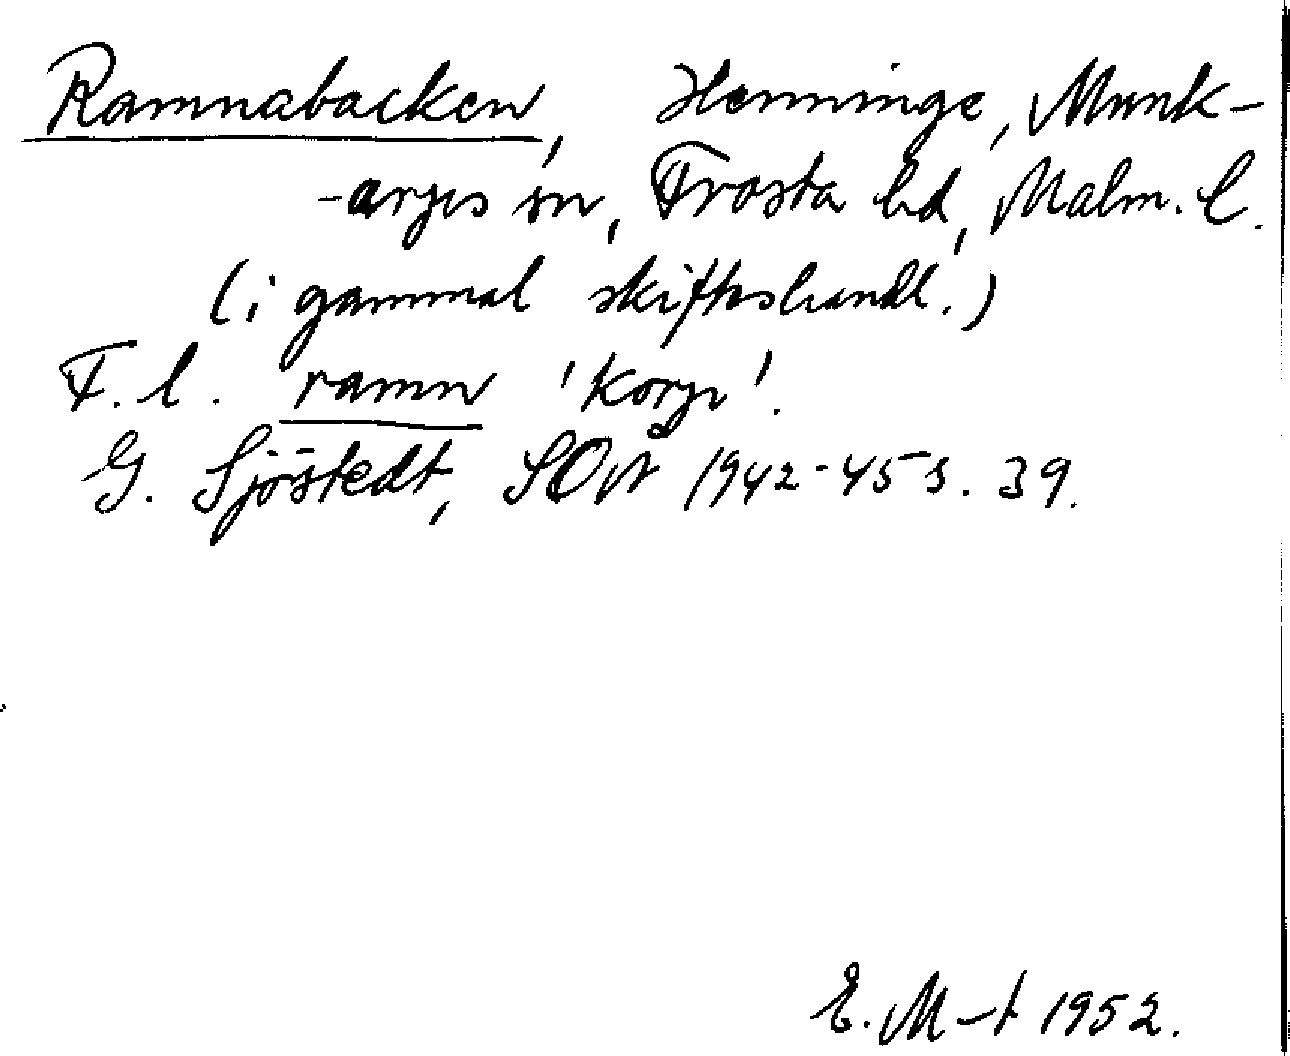 Ramnabacken, Henninge, Munk-
-arps sn, Frosta hd, Malm. l.
(i gammal skifteshandl.)
F. l. ramn 'korp'.
G. Sjöstedt, SOÅ 1942-45 s. 39.
E. M-t 1952.